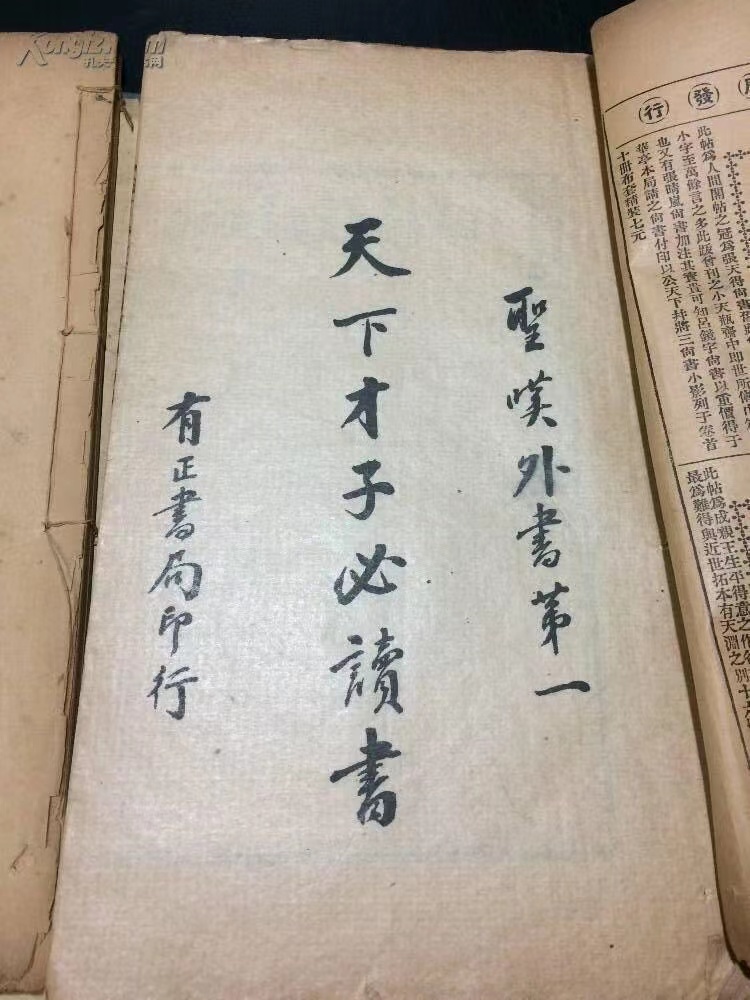 發行
此帖爲人間閣帖之冠爲張天得尚書
小字至萬餘言之多此版曾刊之小天瓶齋中即世所
也又有張晴嵐尚書加注其寶貴可知呂鏡宇尚書以重價得于
華亭本局請之尚書付印以公天下幷將三尚書小影列于卷首
十冊布套精裝七元
此帖爲成親王生平得意之作
最爲難得與近世拓本有天淵之別
聖嘆外書第一
天下才子必讀書
有正書局印行